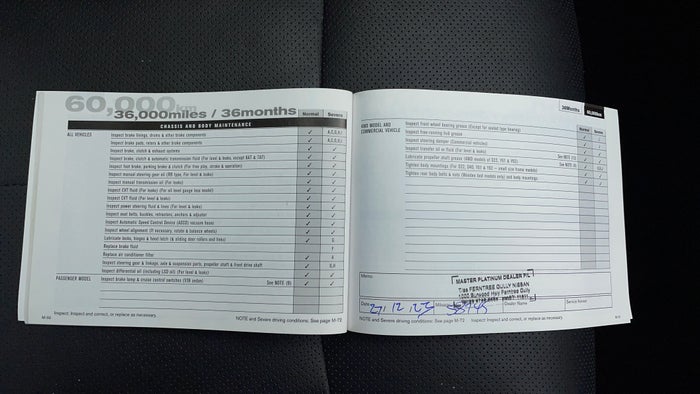 60,000km
36,000miles / 36months
Normal Severe
CHASSIS AND BODY MAINTENANCE
ALL VEHICLES
Inspect brake linings, drums & other brake components ✓
Inspect brake pads, rotors & other brake components ✓
Inspect brake, clutch & exhaust systems ✓ ✓
Inspect brake, clutch & automatic transmission fluid (For level & leaks, ✓ ✓
Inspect foot brake, parking brake & clutch (For free play, stroke & operation) ✓ ✓
Inspect manual steering gear oil (RB type, For level & leaks) ✓ ✓
Inspect manual transmission oil (For leaks) ✓ ✓
Inspect CVT fluid (For leaks) (For oil level gauge less model) ✓ ✓
Inspect CVT fluid (For level & leaks) ✓ ✓
Inspect power steering fluid & lines (For level & leaks) ✓ ✓
Inspect seat belts, buckles, retractors, anchors & adjuster ✓ ✓
Inspect Automatic Speed Control Device (ASCD) vacuum hose ✓ ✓
Inspect wheel alignment (If necessary, rotate & balance wheels) ✓ ✓
Lubricate locks, hinges & hood latch (& sliding door rollers and frees) ✓ G
Replace brake fluid F
Replace air conditioner filter ✓
Inspect steering gear & linkage, axle & suspension parts, propeller shaft & front drive shaft ✓
Inspect differential oil (including LSD oil) (For level & leaks) ✓ ✓
PASSENGER MODEL
Inspect brake lamp & cruise control switches (V36 sedan) See NOTE ✓ ✓
Inspect: Inspect and correct, or replace as necessary.
NOTE and Severe driving conditions: See page M-72
36Months 60,000km
4WD MODEL AND
COMMERCIAL VEHICLE
Normal
Inspect front wheel bearing grease (Except for sealed type bearing)
Inspect free-running hub grease
Inspect steering damper (Commercial vehicles)
Inspect transfer oil or fluid (For level & leaks)
Lubricate propeller shaft grease (4WD models of See NOTE
Tighten body mountings (For small size frame models) See NOTE
Tighten rear body bolts & nuts (Wooden bed models only) and body mountings
Memo:
MASTER PLATINUM DEALER P/L
T/as FERNTREE GULLY NISSAN
Burwood Hwy Ferntree Gully
Date 27, 12, Dealer Name Service Advisor
NOTE and Severe driving conditions: See page M-72 Inspect: Inspect and correct, or replace as necessary.